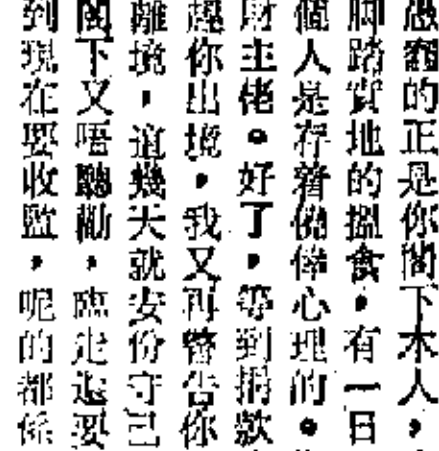 愚蠢的正是你閣下木人，
脚踏實地的搵食，有一日
個人是存着僥倖心理的。
財主佬。好了，等到捐欵
趕你出境，我又再警告你
離境，這幾天就安份守己
閣下又唔聽勸，臨走還要
到現在要收監，呢的都係